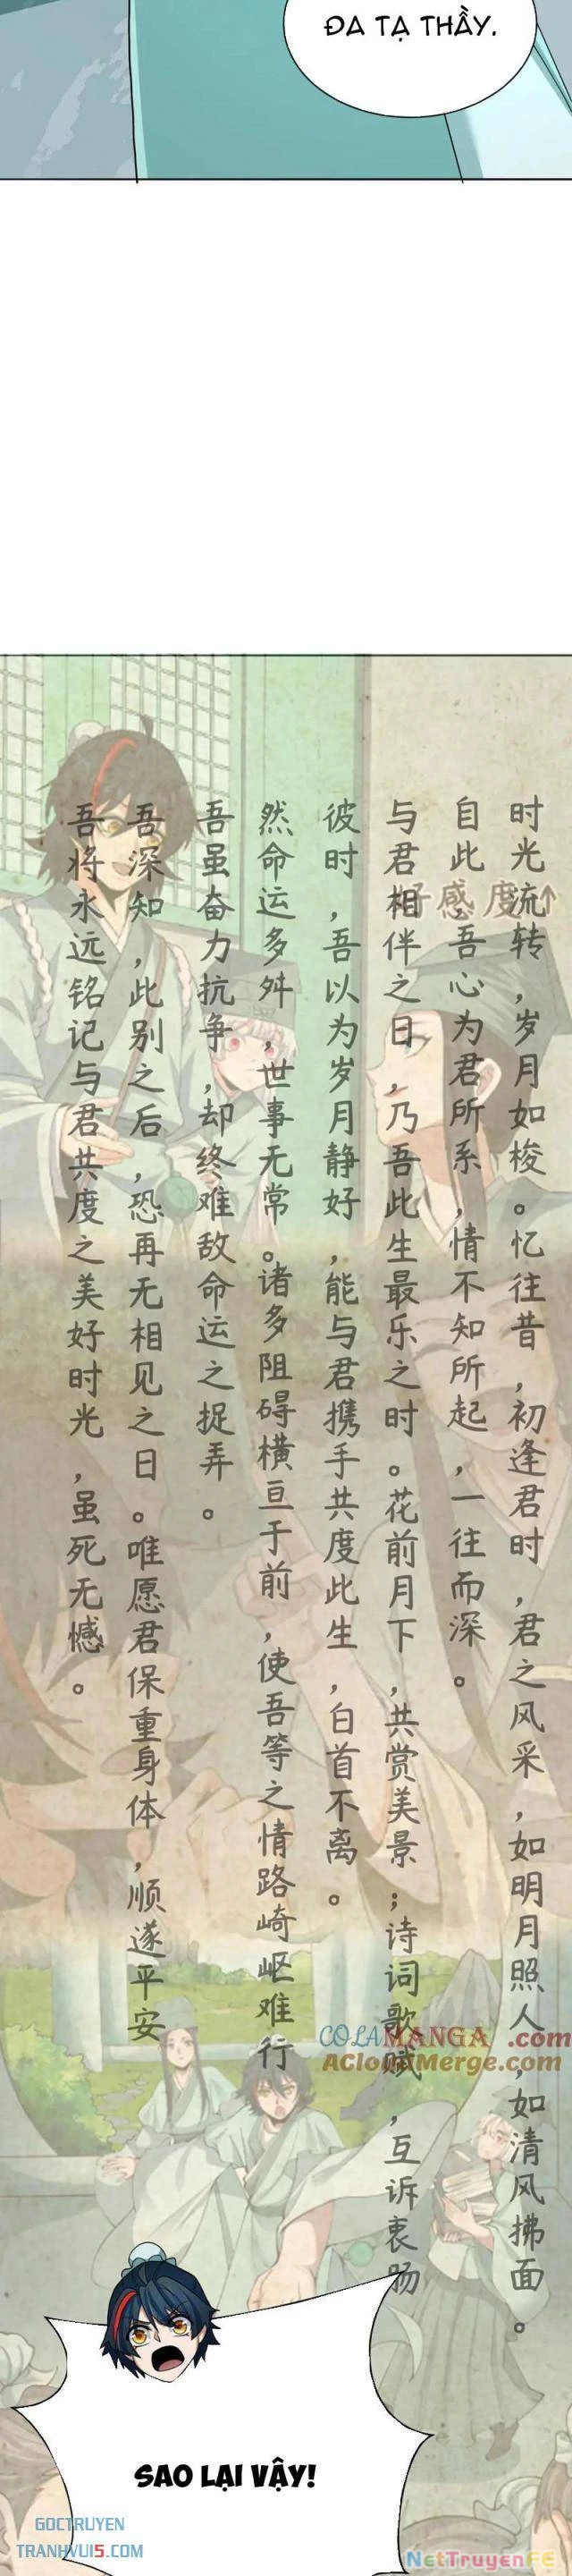 ĐA TẠ THẦY.
好感度↑
时光流转，岁月如梭。忆往昔，初逢君时，君之风采，如明月照人，如清风拂面。
自此，吾心为君所系，情不知所起，一往而深。
与君相伴之日，乃吾此生最乐之时。花前月下，共赏美景；诗词歌赋，互诉衷肠
彼时，吾以为岁月静好，能与君携手共度此生，白首不离。
然命运多舛，世事无常。诸多阻碍横亘于前，使吾等之情路崎岖难行
吾虽奋力抗争，却终难敌命运之捉弄。
吾深知，此别之后，恐再无相见之日。唯愿君保重身体，顺遂平安
吾将永远铭记与君共度之美好时光，虽死无憾。
COLAMANGA.com
ACloudMerge.com
SAO LẠI VẬY!
GOCTRUYEN
TRANHVUI5.COM
NetTruyenFE